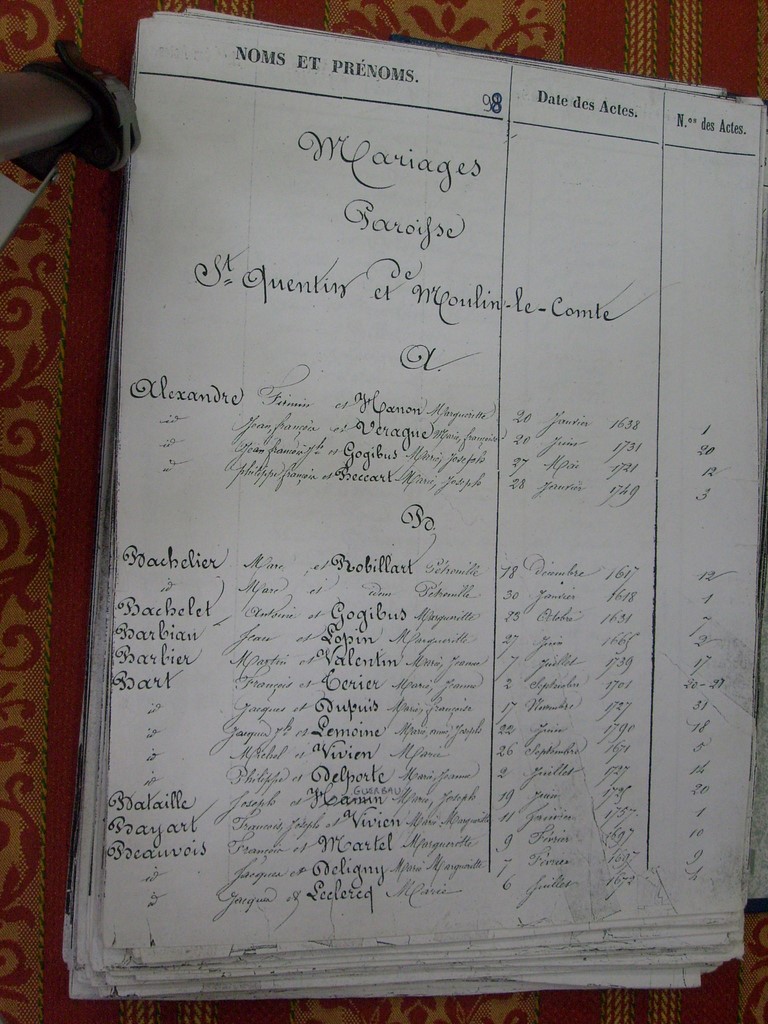 NOMS ET PRÉNOMS.
98
Date des Actes.
N.os des Actes.
Mariages
Paroisse
de
St Quentin et Moulin-le-Comte
A.
Alexandre Firmin et Hanon Marguerite 20 Janvier 1638 1
id Jean françois et Veragne Marie, françoise 20 Juin 1731 20
id Jean françois Jh et Gogibus Marie, Joseph 27 Mai 1721 12
id Philippe françois et Beccart Marie, Joseph 28 Janvier 1749 3
B.
Bachelier Marc et Robillart Pétronille 18 Décembre 1617 12
id Marc et idem Pétronille 30 Janvier 1618 1
Bachelet Antoine et Gogibus Marguerite 23 Octobre 1631 7
Barbian Jean et Lopin Marguerite 27 Juin 1665 2
Barbier Martin et Valentin Marie, Jeanne 7 Juillet 1739 17
Bart François et Terier Marie, Jeanne 2 Septembre 1701 20-21
id Jacques et Dupuis Marie, françoise 17 Novembre 1727 31
id Jacques Jh et Lemoine Marie, Joseph 22 Juin 1790 18
id Michel et Vivien Marie 26 Septembre 1671 5
id Philippe et Delporte Marie Jeanne 2 Juillet 1727 14
GUERBAU
Bataille Joseph et Hamin Marie, Joseph 19 Juin 20
Bayart François, Joseph et Vivien Marie Marguerite 11 Janvier 1757 1
Beauvois François et Martel Marguerite 9 Février 1697 10
id Jacques et Deligny Marie Marguerite 7 Février 1697 9
id Jacques et Leclercq Marie 6 Juillet 1672 4